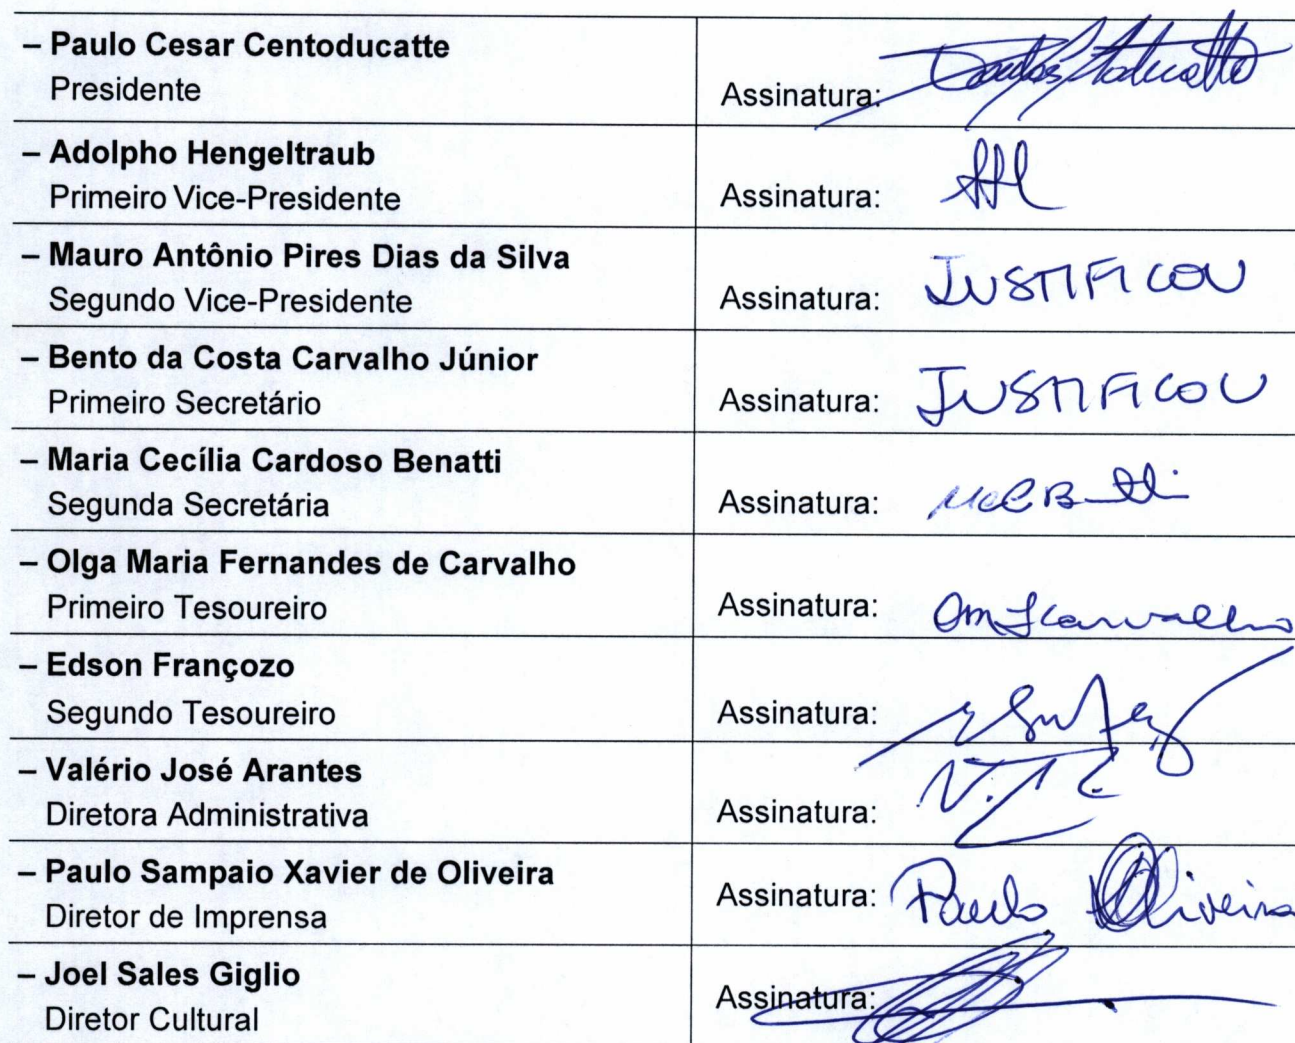 – Paulo Cesar Centoducatte
Presidente
Assinatura:
– Adolpho Hengeltraub
Primeiro Vice-Presidente
Assinatura:
– Mauro Antônio Pires Dias da Silva
Segundo Vice-Presidente
Assinatura: JUSTIFICOU
– Bento da Costa Carvalho Júnior
Primeiro Secretário
Assinatura: JUSTIFICOU
– Maria Cecília Cardoso Benatti
Segunda Secretária
Assinatura:
– Olga Maria Fernandes de Carvalho
Primeiro Tesoureiro
Assinatura: OmfCarvalho
– Edson Françozo
Segundo Tesoureiro
Assinatura:
– Valério José Arantes
Diretora Administrativa
Assinatura:
– Paulo Sampaio Xavier de Oliveira
Diretor de Imprensa
Assinatura: Paulo Oliveira
– Joel Sales Giglio
Diretor Cultural
Assinatura: